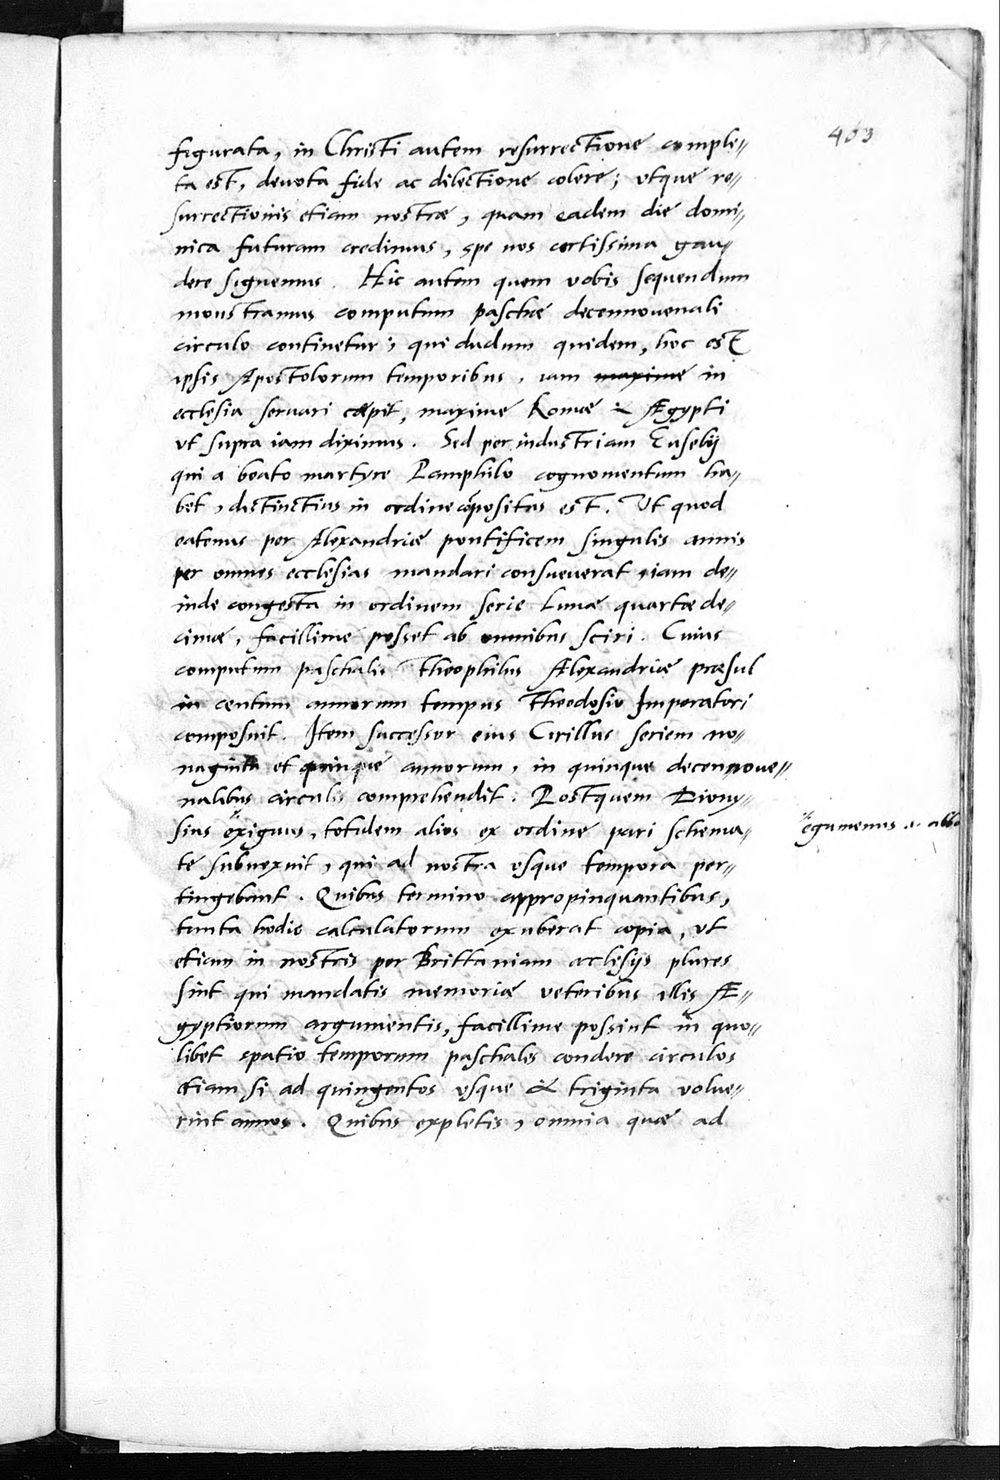 463
figurata, in Christi autem resurrectione comple〃
ta est, deuota fide ac dilectione colere; vtque re〃
surrectionis etiam nostræ, quam eadem die domi〃
nica futuram credimus, spe nos certissima gau〃
dere signemus. Hic autem quem vobis sequendum
monstramus computum paschæ decennouenali
circulo continetur; qui dudum quidem, hoc est
ipsis Apostolorum temporibus, iam maxime in
ecclesia seruari cœpit, maxime Romæ & Ægypti
vt supra iam diximus. Sed per industriam Eusebij
qui a beato martyre Pamphilo cognomentum ha〃
bet, distinctius in ordine cōpositus est. Ut quod
eatenus per Alexandriæ pontificem singulis annis
per omnes ecclesias mandari consueuerat, iam de〃
inde congesta in ordinem serie Lunæ quartæ de〃
cimæ, facillime posset ab omnibus sciri. Cuius
computum paschalis Theophilus Alexandriæ præsul
in centum annorum tempus Theodosio Imperatori
composuit. Item successor eius Cirillus seriem no〃
naginta et quinque annorum, in quinque decennoue〃
nalibus circulis comprehendit. Postquem Diony〃
sius exiguus, totidem alios ex ordine pari schema〃
egumenus .i. abba
te subnexuit, qui ad nostra vsque tempora per〃
tingebant. Quibus termino appropinquantibus,
tanta hodie calculatorum exuberat copia, vt
etiam in nostris per Brittaniam ecclesijs plures
sint qui mandatis memoriæ veteribus illis Æ〃
gyptiorum argumentis, facillime possint in quo〃
libet spatio temporum paschales condere circulos
etiam si ad quingentos vsque & triginta volue〃
rint annos. Quibus expletis, omnia quæ ad